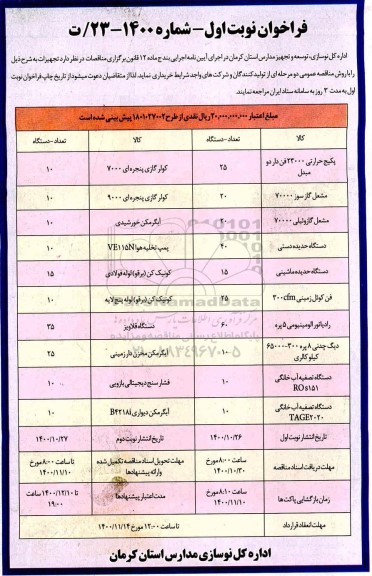 فراخوان نوبت اول - شماره ۱۴۰۰-۲۳/ت
اداره کل نوسازی، توسعه و تجهیز مدارس استان کرمان در اجرای آیین نامه اجرایی بند ج ماده ۱۲ قانون برگزاری مناقصات در نظر دارد تجهیزات به شرح ذیل
را با روش مناقصه عمومی دو مرحله ای از تولیدکنندگان و شرکت های واجد شرایط خریداری نماید. لذا از متقاضیان دعوت میشود از تاریخ چاپ فراخوان نوبت
اول به مدت ۳ روز به سامانه ستاد ایران مراجعه نمایند.
مبلغ اعتبار ۲۰,۰۰۰,۰۰۰,۰۰۰ ریال نقدی از طرح ۱۸۰۱۰۲۷۰۰۲ پیش بینی شده است
کالا تعداد - دستگاه کالا تعداد - دستگاه
پکیج حرارتی ۲۳۰۰۰ فن دار دو مبدل ۲۵ کولر گازی پنجره ای ۷۰۰۰ ۱۰
مشعل گازسوز ۷۰۰۰۰ ۲۰ کولر گازی پنجره ای ۹۰۰۰ ۱۰
مشعل گازوئیلی ۷۰۰۰۰ ۱۰ آبگرمکن خورشیدی ۱۰
دستگاه حدیده دستی ۴۰ پمپ تخلیه هوا VE115N ۱۰
دستگاه حدیده ماشینی ۱۵ کونیک کن (برقو) لوله فولادی ۱۵
فن کوئل زمینی ۳۰۰cfm ۲۵ کونیک کن (برقو) لوله پنج لایه ۱۰
رادیاتور آلومینیومی ۵ پره ۶۰ دستگاه قلاویز ۳۵
دیگ چدنی ۸ پره ۳۰۰-۶۵۰۰۰ کیلو کالری ۱۰ آبگرمکن مخزن دار زمینی ۲۵
دستگاه تصفیه آب خانگی RO8151 ۱۰ فشار سنج دیجیتالی بازویی ۱۰
دستگاه تصفیه آب خانگی TAGE2020 ۱۰ آبگرمکن دیواری B4218i ۱۰
تاریخ انتشار نوبت اول ۱۴۰۰/۱۰/۲۶ تاریخ انتشار نوبت دوم ۱۴۰۰/۱۰/۲۷
مهلت دریافت اسناد مناقصه تا ساعت ۸:۰۰ مورخ ۱۴۰۰/۱۰/۳۰ مهلت تحویل اسناد مناقصه تکمیل شده وارائه پیشنهادها تا ساعت ۸:۰۰ مورخ ۱۴۰۰/۱۱/۱۰
زمان بازگشایی پاکت ها ساعت ۸:۱۰ مورخ ۱۴۰۰/۱۱/۱۰ مدت اعتبار پیشنهادها تا ۱۴۰۰/۱۲/۱۰ ساعت ۱۹:۰۰
مهلت انعقاد قرارداد تا ساعت ۱۲:۰۰ مورخ ۱۴۰۰/۱۱/۱۴
اداره کل نوسازی مدارس استان کرمان